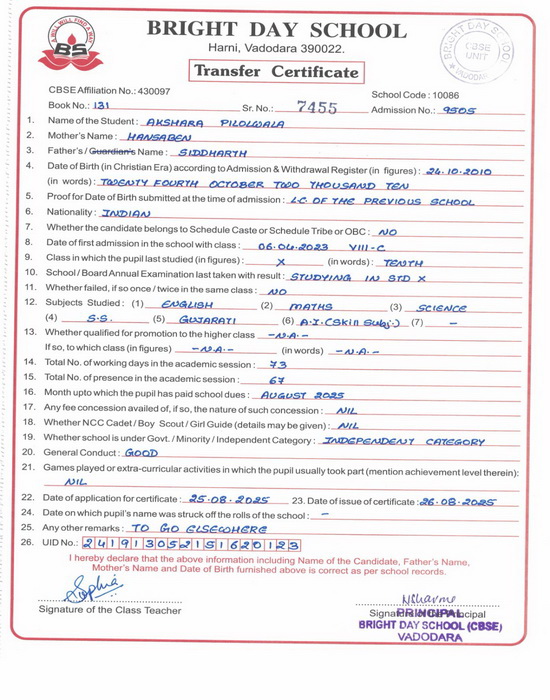 A WILL WILL FIND A WAY
BS
BRIGHT DAY SCHOOL
Harni, Vadodara 390022.
Transfer Certificate
BRIGHT DAY SCHOOL
CBSE
UNIT
VADODARA
CBSE Affiliation No.: 430097
School Code : 10086
Book No.: 131 Sr. No.: 7455 Admission No.: 9505
1. Name of the Student : AKSHARA PILOLWALA
2. Mother's Name : HANSABEN
3. Father's / Guardian's Name : SIDDHARTH
4. Date of Birth (in Christian Era) according to Admission & Withdrawal Register (in figures) : 24.10.2010
(in words) : TWENTY FOURTH OCTOBER TWO THOUSAND TEN
5. Proof for Date of Birth submitted at the time of admission : L.C. OF THE PREVIOUS SCHOOL
6. Nationality : INDIAN
7. Whether the candidate belongs to Schedule Caste or Schedule Tribe or OBC : NO
8. Date of first admission in the school with class : 06.04.2023 VIII-C
9. Class in which the pupil last studied (in figures) : X (in words) : TENTH
10. School / Board Annual Examination last taken with result : STUDYING IN STD X
11. Whether failed, if so once / twice in the same class : NO
12. Subjects Studied : (1) ENGLISH (2) MATHS (3) SCIENCE
(4) S.S. (5) GUJARATI (6) A.I. (Skill Subj.) (7) -
13. Whether qualified for promotion to the higher class -N.A.-
If so, to which class (in figures) -N.A.- (in words) -N.A.-
14. Total No. of working days in the academic session : 73
15. Total No. of presence in the academic session : 67
16. Month upto which the pupil has paid school dues : AUGUST 2025
17. Any fee concession availed of, if so, the nature of such concession : NIL
18. Whether NCC Cadet / Boy Scout / Girl Guide (details may be given) : NIL
19. Whether school is under Govt. / Minority / Independent Category : INDEPENDENT CATEGORY
20. General Conduct : GOOD
21. Games played or extra-curricular activities in which the pupil usually took part (mention achievement level therein):
NIL
22. Date of application for certificate : 25.08.2025 23. Date of issue of certificate : 26.08.2025
24. Date on which pupil's name was struck off the rolls of the school : -
25. Any other remarks : TO GO ELSEWHERE
26. UID No.: 241913052151620123
I hereby declare that the above information including Name of the Candidate, Father's Name,
Mother's Name and Date of Birth furnished above is correct as per school records.
Sophia
Signature of the Class Teacher
Signature of the Principal
PRINCIPAL
BRIGHT DAY SCHOOL (CBSE)
VADODARA